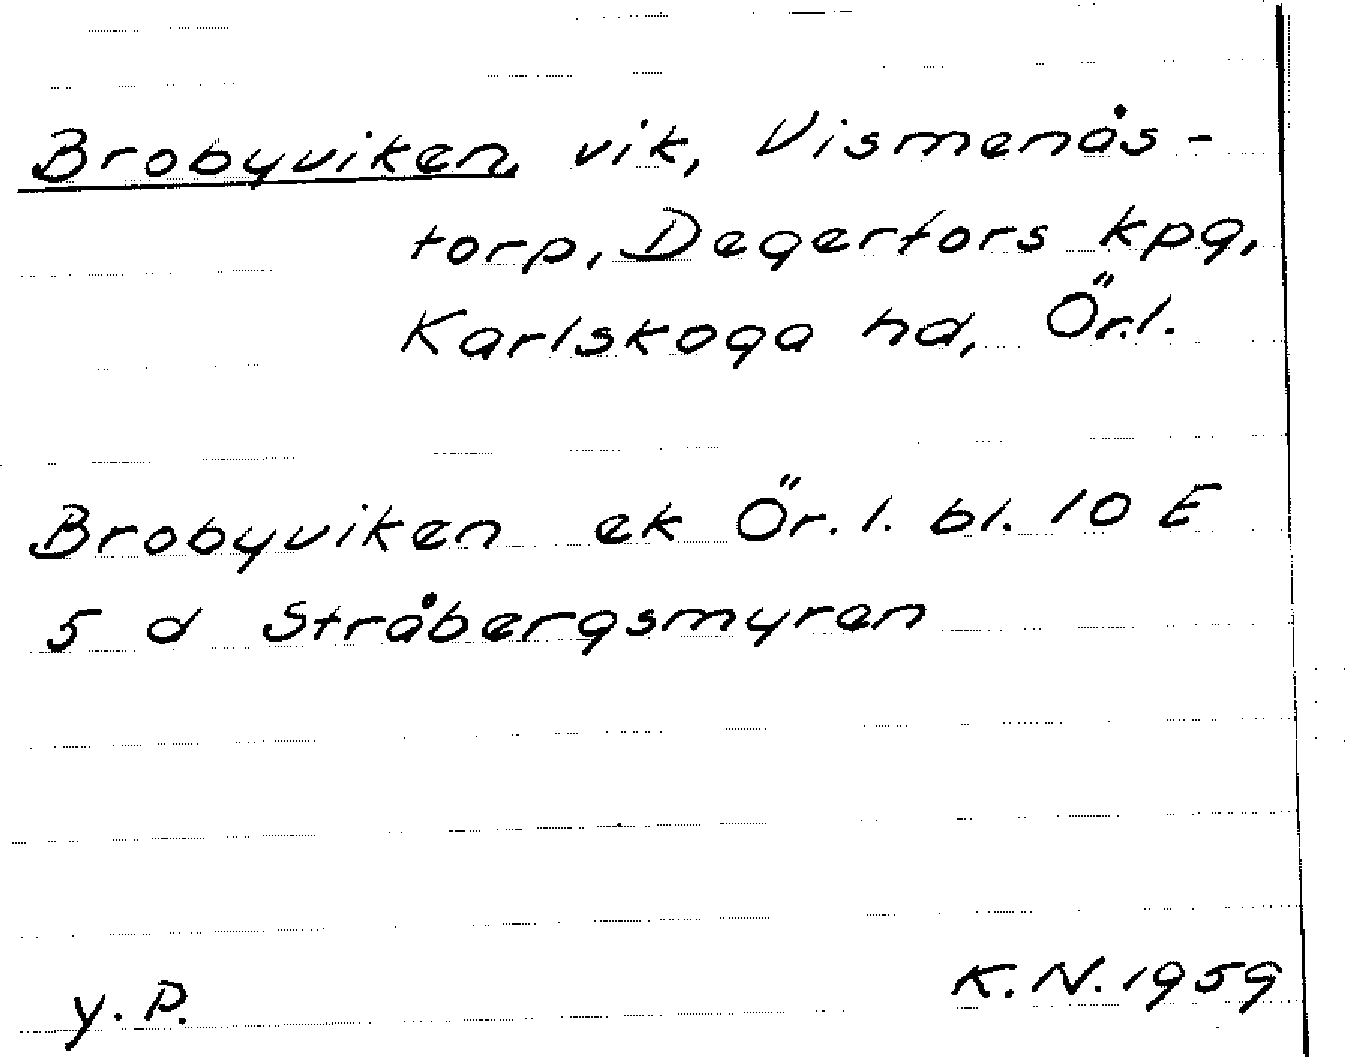 Brobyviken, vik, Vismenås-
torp, Degerfors kpg,
Karlskoga hd, Ör.l.
Brobyviken ek Ör.l. bl. 10 E
5 d Stråbergsmyren
y.P. K.N.1959